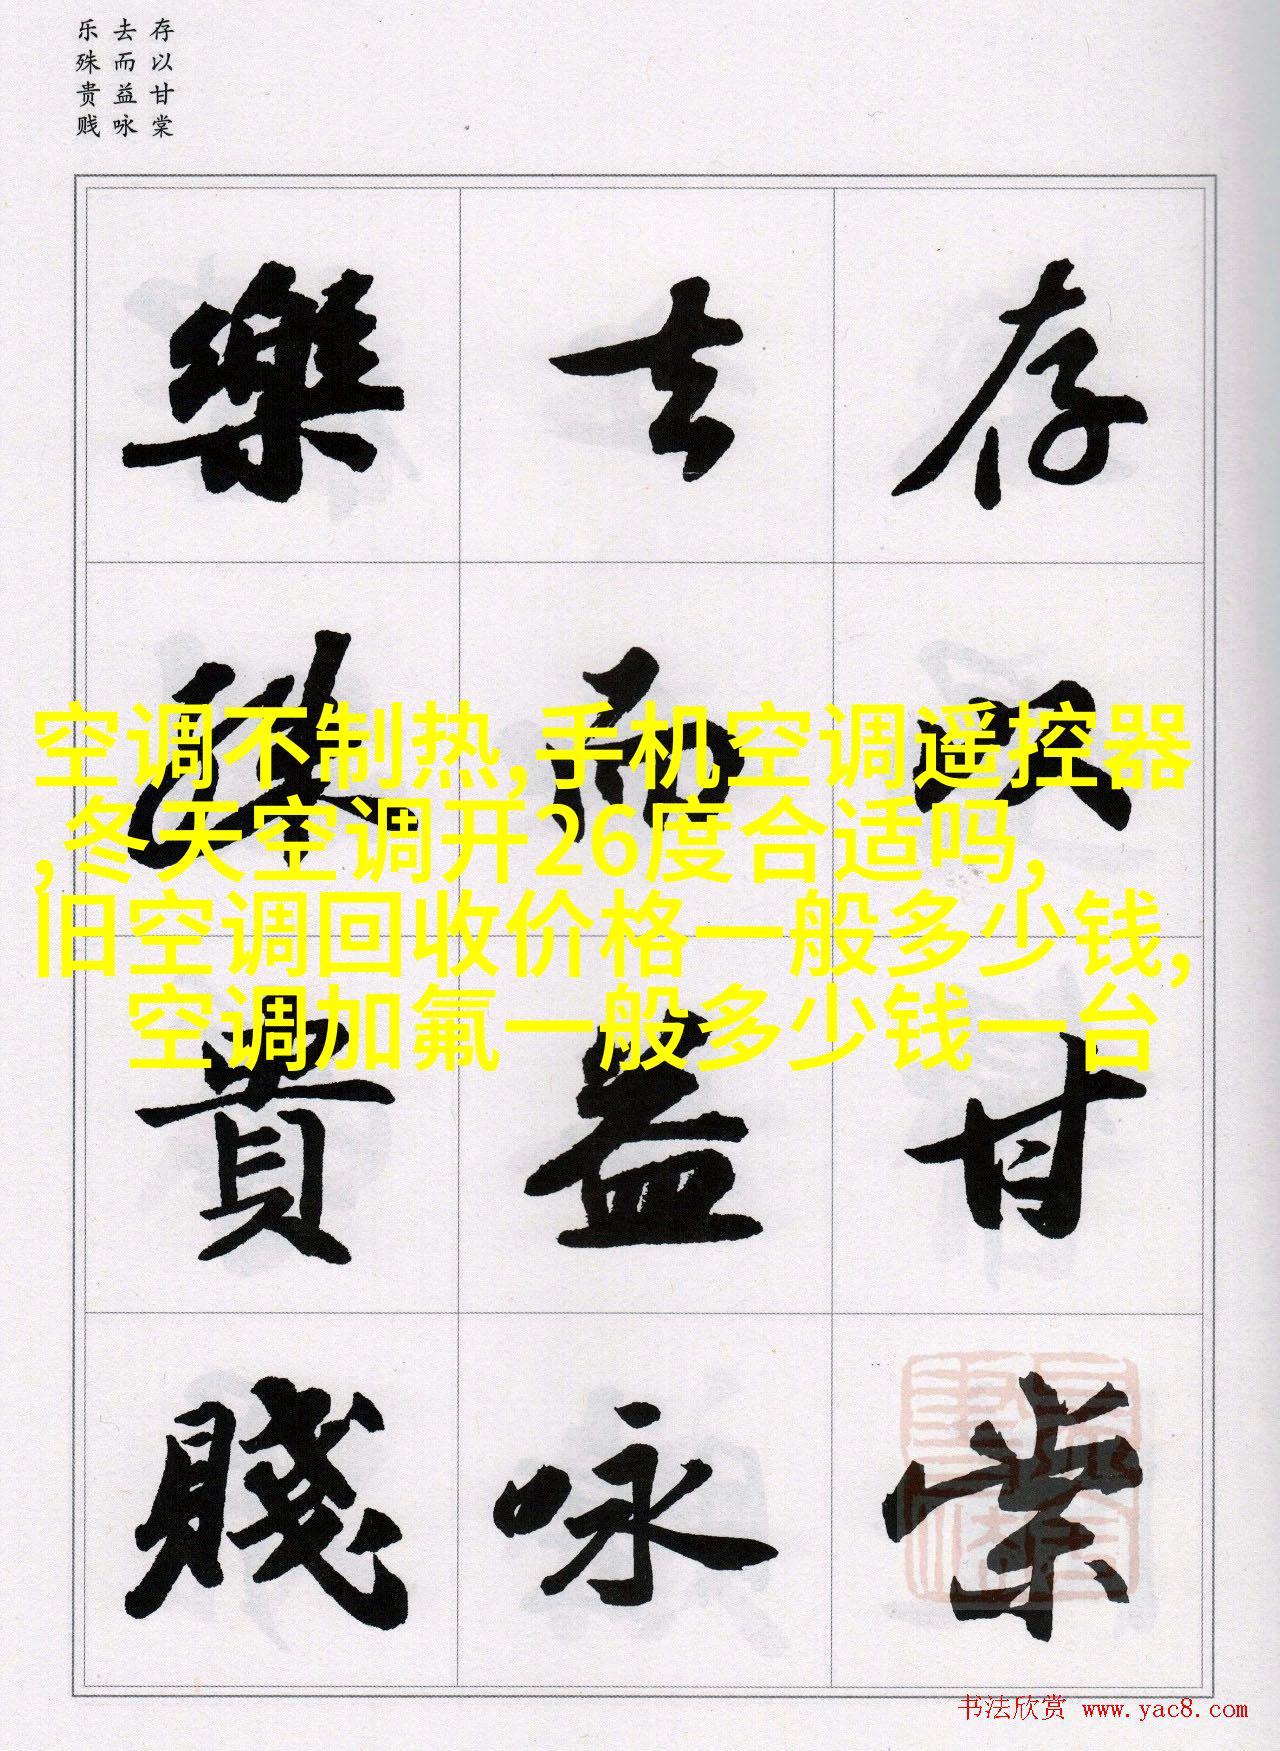 存以甘棠
去而益咏
乐殊贵贱
存以甘棠
去而益詠
樂殊貴賤
空调不制热,手机空调遥控器
,冬天空调开26度合适吗,
旧空调回收价格一般多少钱,
空调加氟一般多少钱一台
书法欣赏 www.yac8.com